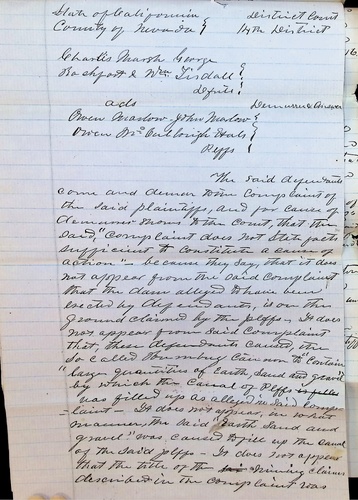 State of California } District Court
County of Nevada } 14th District
Charles Marsh George
Rochfort & Wm Tisdall }
Defts }
ads Demurrer & Answer
Owen Marlow John Marlow }
Owen Mc Cullough et als }
Plffs }
The said defendants
come and demur to the Complaint of
the said plaintiffs, and for cause of
demurrer show to the Court, that the
said, "Complaint does not state facts
sufficient to constitute a cause of
action" - because they say that it does
not appear from the said Complaint
that the dam alleged to have been
erected by defendants, is on the
ground claimed by the plffs - It does
not appear from said Complaint
that, these defendants caused, the
so called Humbug Cannon to "contain
"large quantities of Earth, Sand and gravel
by which the Canal of Plffs is filled
was filled up as alleged in said Comp-
laint - It does not appear, in what
manner, the said "Earth Sand and
gravel" was, caused to fill up the Canal
of the said plffs - It does not appear
that the title of the mining Claims
described in the complaint was